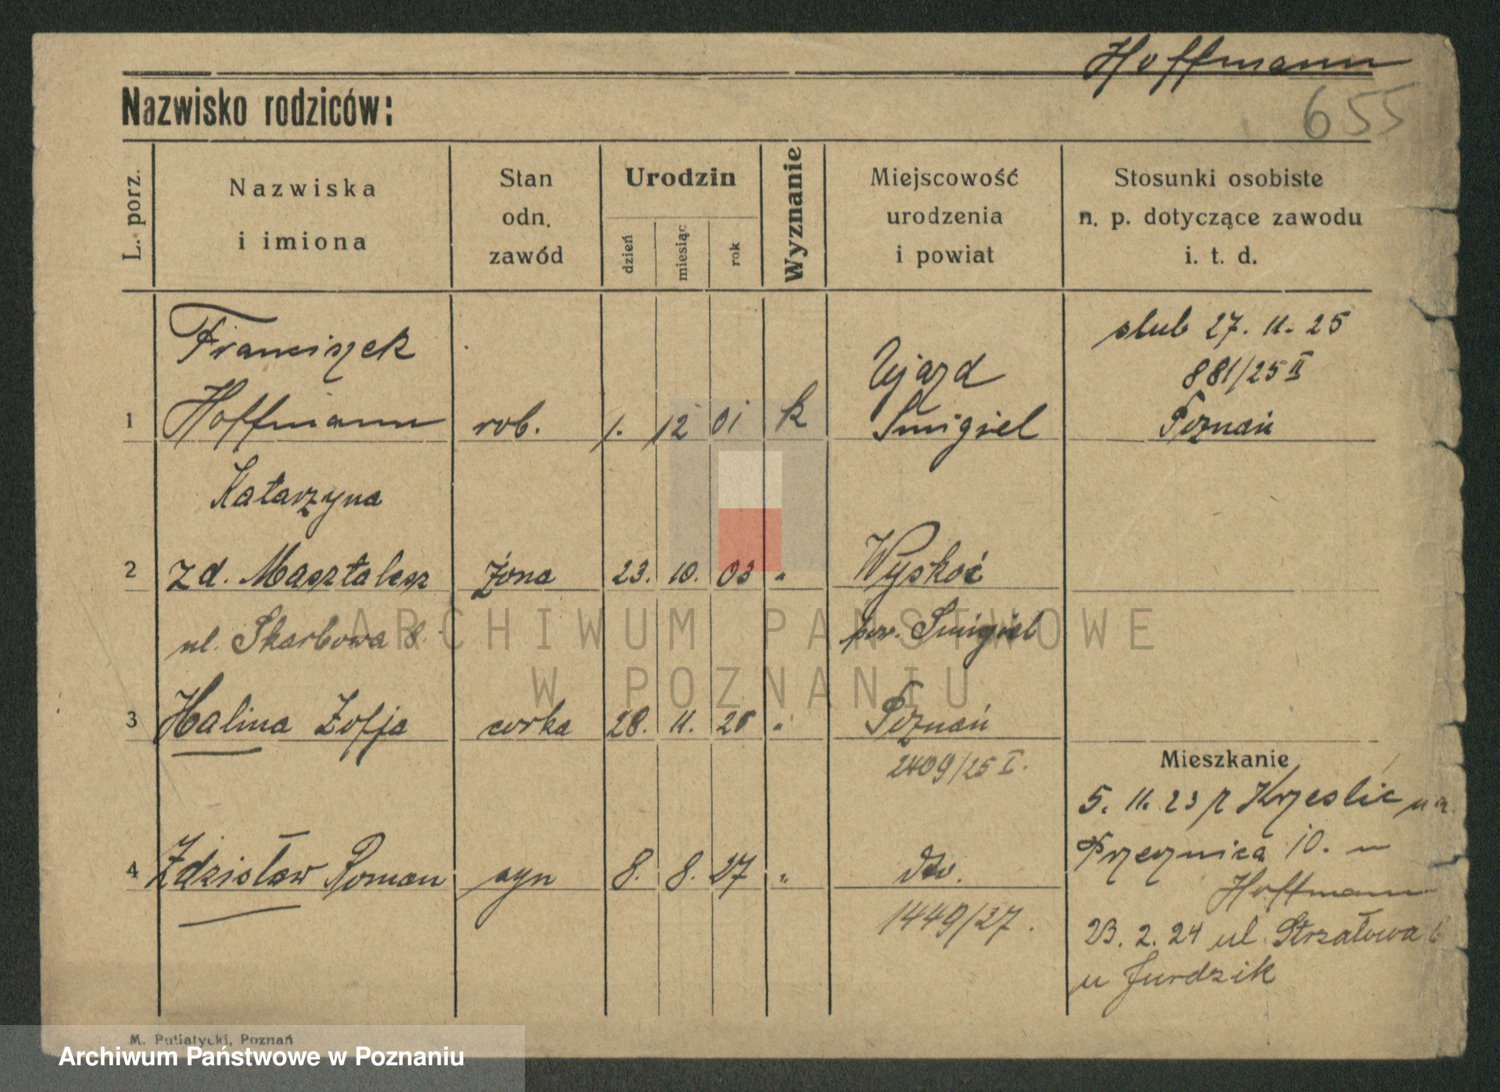 Hoffmann
655
Nazwisko rodziców:
L. porz.
Nazwiska
i imiona
Stan
odn.
zawód
Urodzin
dzień
miesiąc
rok
Wyznanie
Miejscowość
urodzenia
i powiat
Stosunki osobiste
n. p. dotyczące zawodu
i. t. d.
Franciszek
Ujazd
slub 27. 11. 25
881/25 II
1 Hoffmann rob. 1. 12 01 k Smigiel Poznań
Katarzyna
2 zd. Masztalerz żona 23. 10. 03 " Wyskoć
ul. Skarbowa 8. pow. Smigiel
3 Halina Zofja corka 28. 11. 25 " Poznań
2409/25 I.
Mieszkanie
5. 11. 23 Krzeslic
Przecznica 10.
4 Zdzisław Roman syn 8. 8. 27 "
Hoffmann
1449/27.
23. 2. 24 ul. Strzałowa 6
u Jurdzik
M. Putiatycki, Poznań
ARCHIWUM PAŃSTWOWE
W POZNANIU
Archiwum Państwowe w Poznaniu